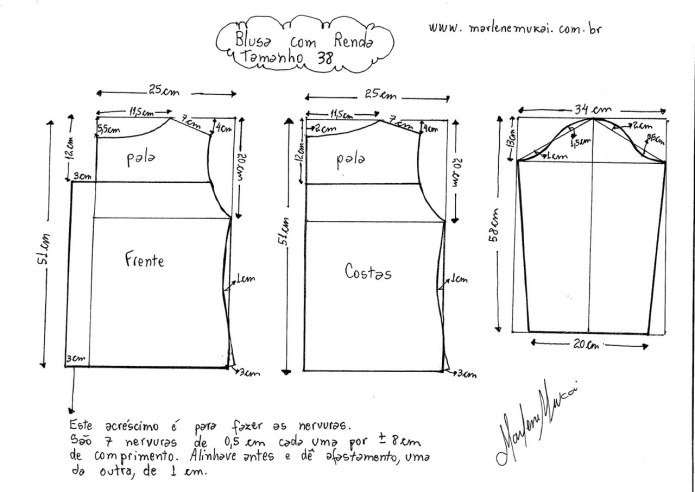 Blusa com Renda
Tamanho 38
www.marlenemukai.com.br
25cm
11,5cm
7cm
5,5cm
4cm
12cm
pala
20cm
3cm
51cm
Frente
1cm
3cm
3cm
25cm
11,5cm
7cm
2cm
4cm
12cm
pala
20cm
51cm
Costas
1cm
3cm
34cm
13cm
2cm
1,5cm
1cm
58cm
20cm
Este acréscimo é para fazer as nervuras.
São 7 nervuras de 0,5 cm cada uma por ± 8cm
de comprimento. Alinhave antes e dê afastamento, uma
da outra, de 1 cm.
Marlene Mukai